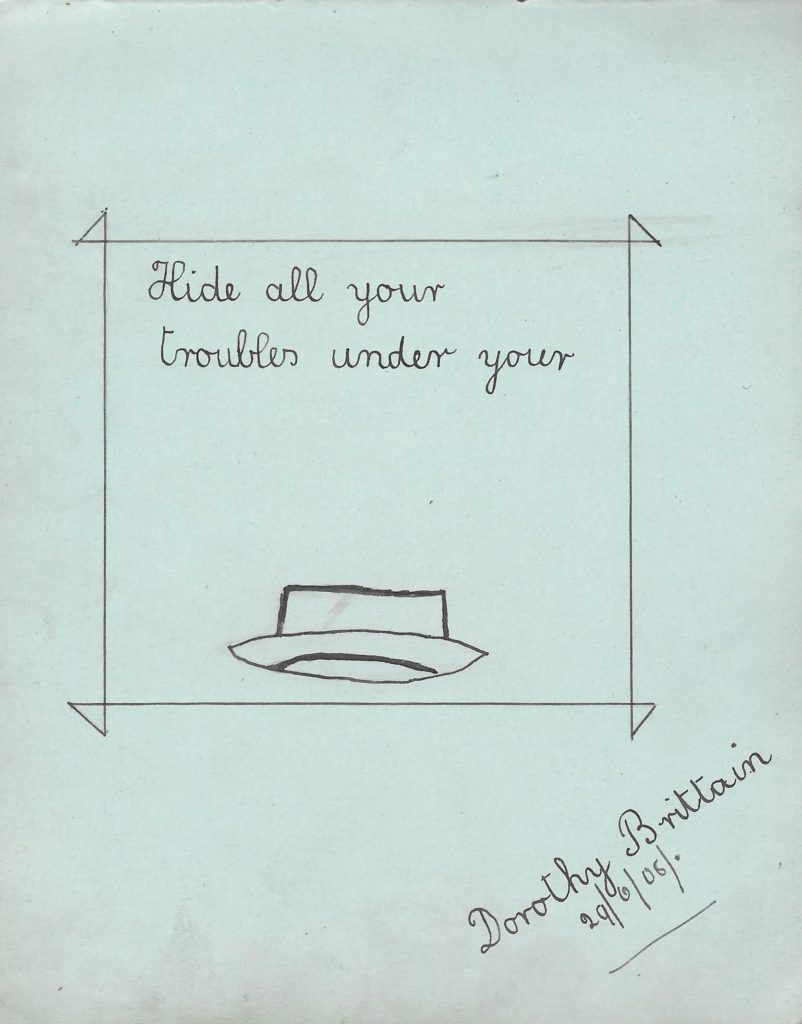 Hide all your
troubles under your
Dorothy Brittain
29/6/06/.